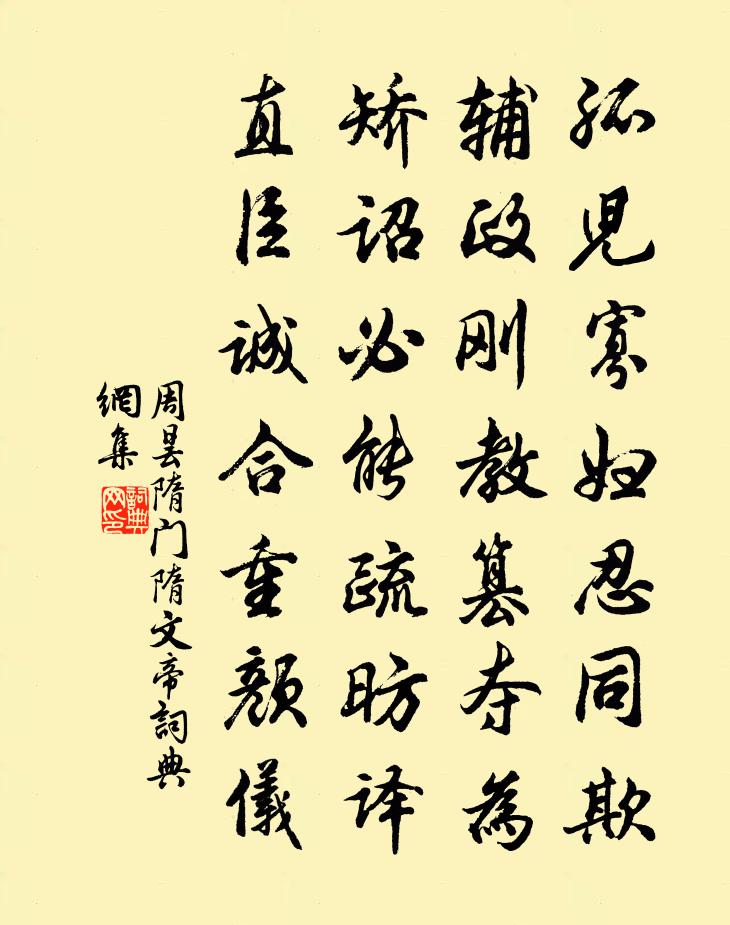 孤兒寡妇忍同欺
辅政刚教篡夺為
矫诏必能疏昉译
直臣诚合重颜儀
周昙隋门隋文帝詞典
網集
詞典
网印